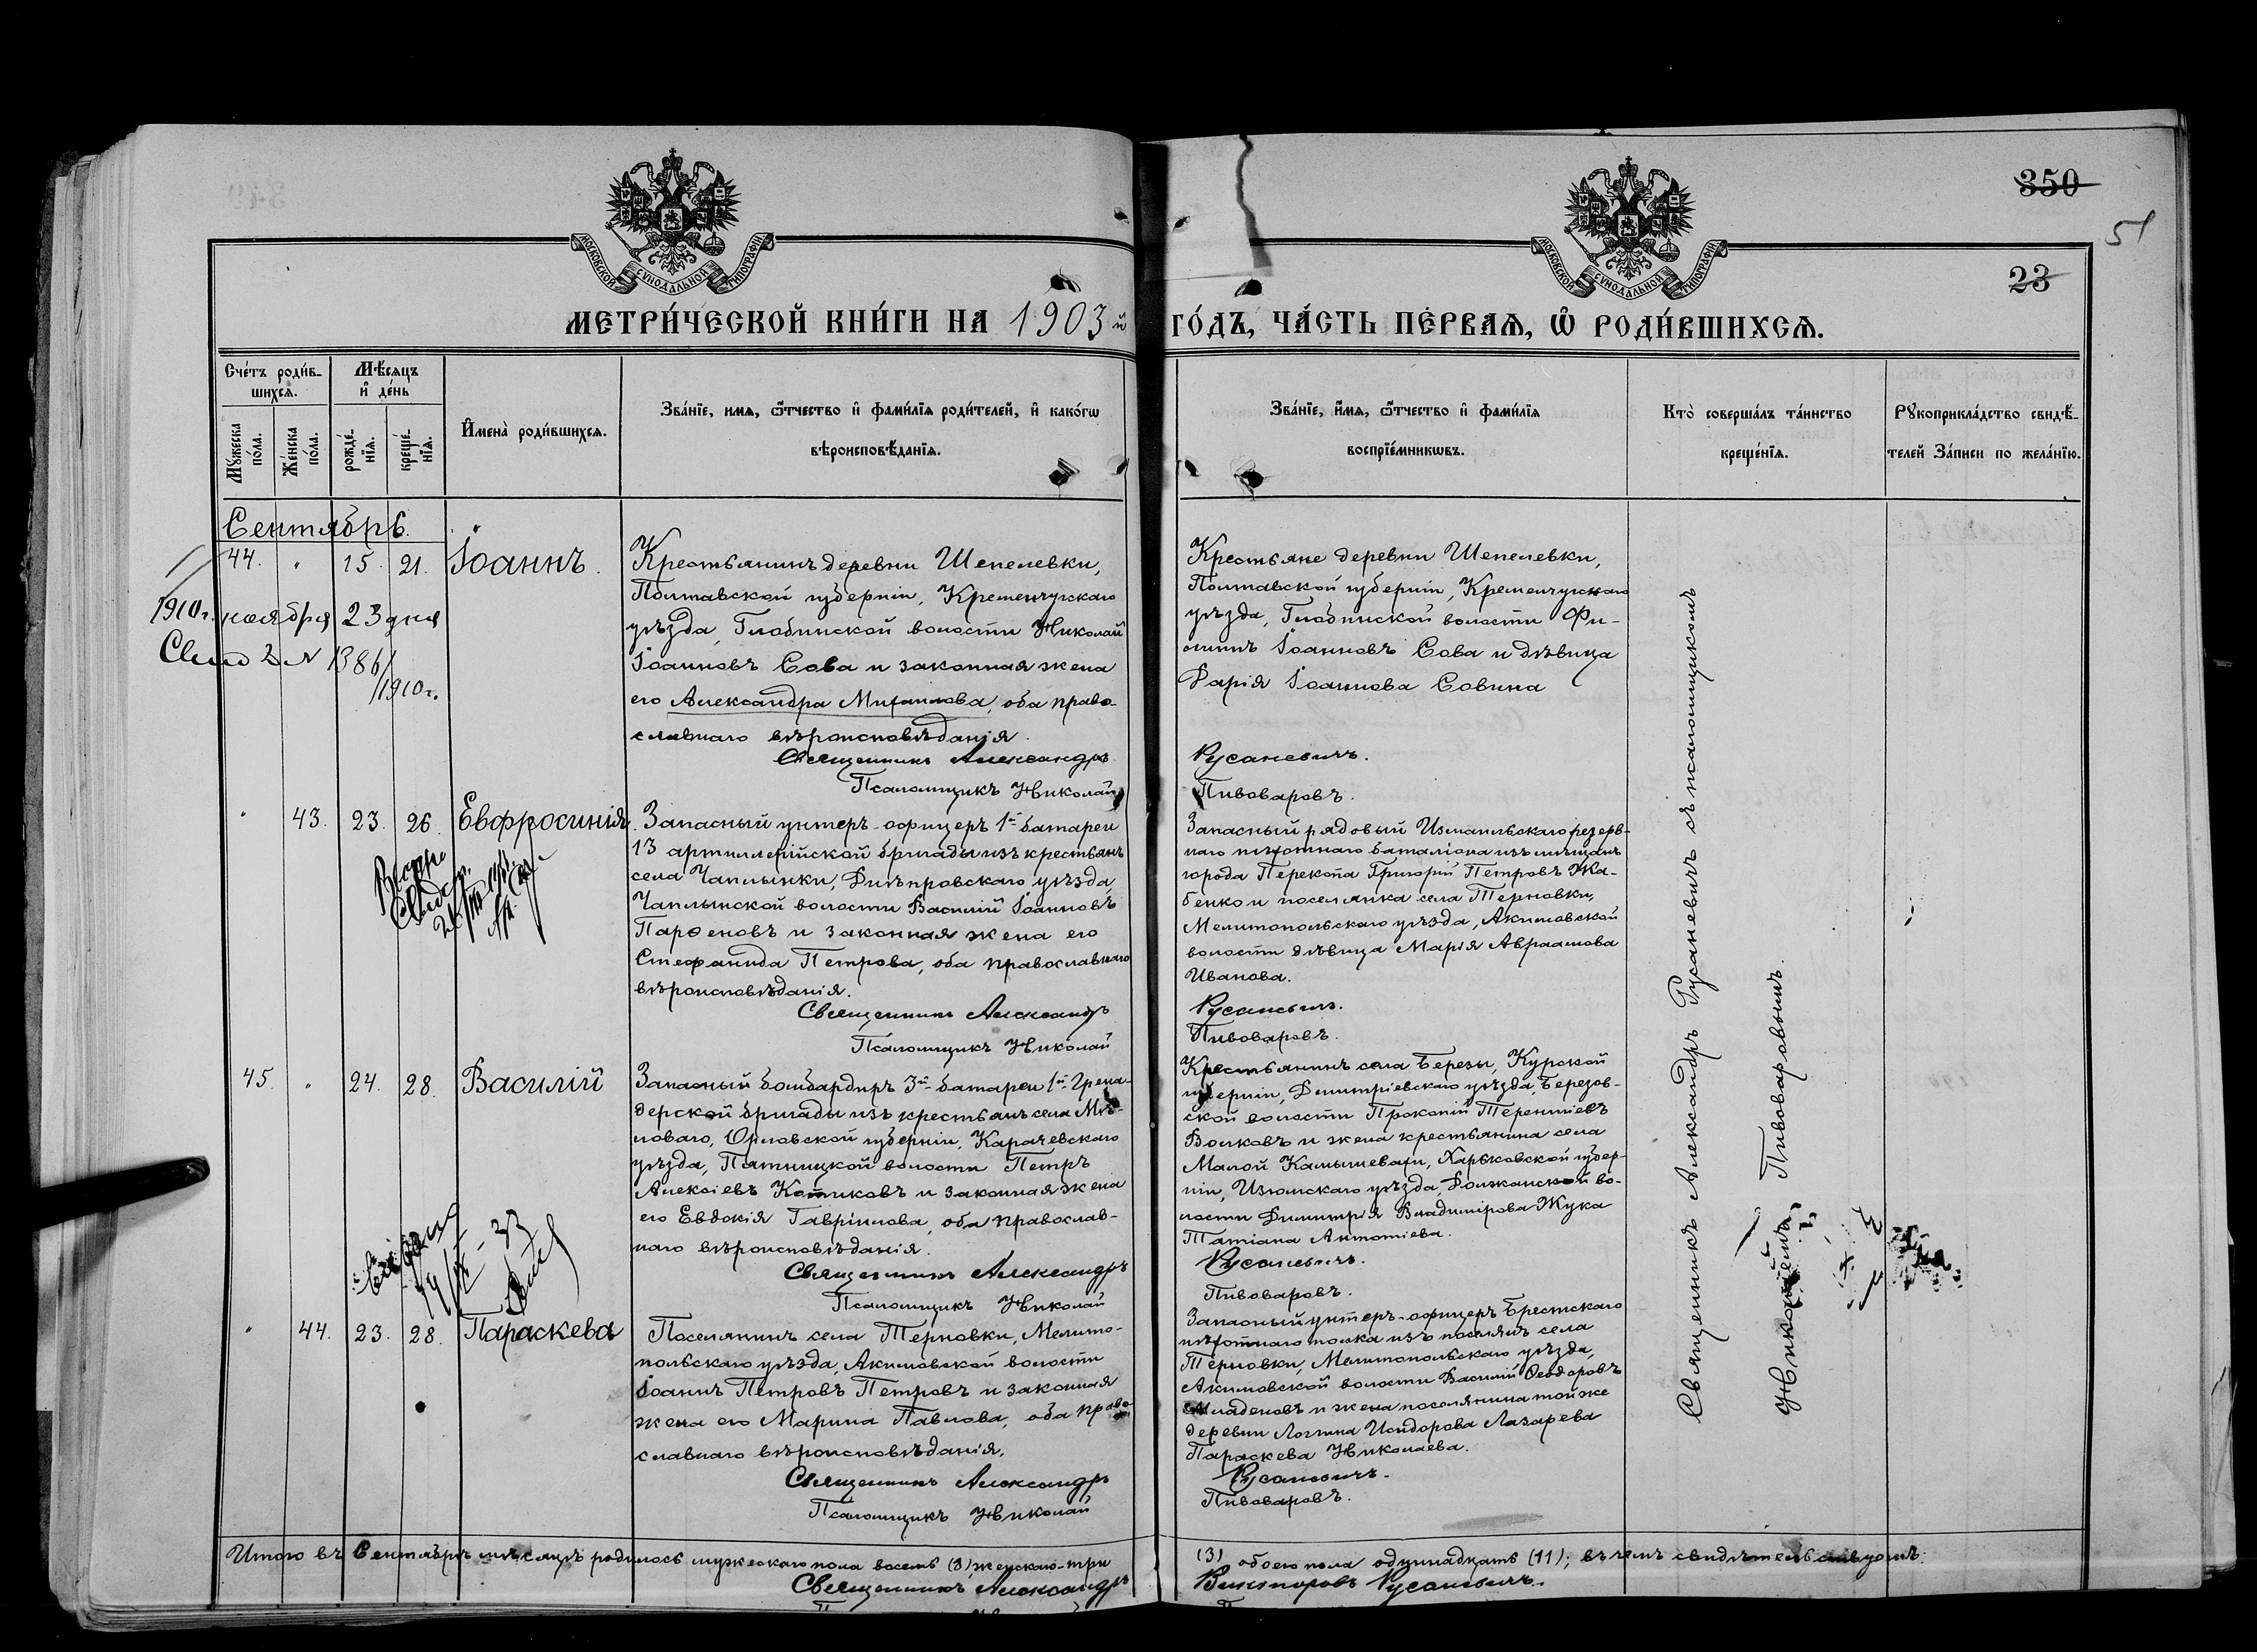 350
51
23
МОСКОВСКОЙ СѴНОДАЛЬНОЙ ТИПОГРАФІИ
МОСКОВСКОЙ СѴНОДАЛЬНОЙ ТИПОГРАФІИ
МЕТРИ́ЧЕСКОЙ КНИ́ГИ НА 1903 й
ГО́ДЪ, ЧА́СТЬ ПЕ́РВАѦ, Ѿ РОДИ́ВШИХСѦ.
Сче́тъ роди́в-
шихсѧ.
Мѣ́сѧцъ
и де́нь
Мꙋ́жеска
по́ла.
Же́нска
по́ла.
рожде́-
нїѧ.
креще́-
нїѧ.
Имена̀ роди́вшихсѧ.
Зва́нїе, имѧ, ѻ́тчество и фами́лїѧ роди́телей, и како́гѡ
вѣроисповѣ́данїѧ.
Зва́нїе, и́мѧ, ѻ́тчество и фами́лїѧ
воспрїе́мникѡвъ.
Кто̀ соверша́лъ та́инство
креще́нїѧ.
Рꙋкоприкла́дство свидѣ́-
телей За́писи по жела́нїю.
Сентябрь.
44. " 15. 21. Іоаннъ.
1910 г. ноября 23 дня
№ 1386/
1910 г.
Крестьянинъ деревни Шепелевки,
Полтавской губерніи, Кременчугскаго
уѣзда, Глобинской волости Николай
Іоанновъ Сова и законная жена
его Александра Михаилова, оба право-
славнаго вѣроисповѣданія.
Священникъ Александръ
Псаломщикъ Николай
Крестьяне деревни Шепелевки,
Полтавской губерніи, Кременчугскаго
уѣзда, Глобинской волости Фи-
липпъ Іоанновъ Сова и дѣвица
Дарія Іоаннова Совина
Русаневичъ.
Пивоваровъ.
" 43. 23. 26. Евфросинія.
Запасный унтеръ-офицеръ 1й батареи
13 артиллерійской бригады изъ крестьянъ
села Чаплынки, Днѣпровскаго уѣзда,
Чаплынской волости Василій Іоанновъ
Парѳеновъ и законная жена его
Стефанида Петрова, оба православнаго
вѣроисповѣданія.
Священникъ Александръ
Псаломщикъ Николай
Запасный рядовый Измаильскаго резерв-
наго пѣхотнаго баталіона изъ мѣщанъ
города Перекопа Григорій Петровъ Жа-
бенко и поселянка села Терновки,
Мелитопольскаго уѣзда, Акимовской
волости дѣвица Марія Авраамова
Иванова.
Русаневичъ.
Пивоваровъ.
45. " 24. 28. Василій
Запасный бомбардиръ 3й батареи 1й Грена-
дерской бригады изъ крестьянъ села Мѣ-
ловаго, Орловской губерніи, Карачевскаго
уѣзда, Пятницкой волости Петръ
Алексіевъ Котиковъ и законная жена
его Евдокія Гавріилова, оба православ-
наго вѣроисповѣданія.
Священникъ Александръ
Псаломщикъ Николай
Крестьянинъ села Березы, Курской
губерніи, Димитріевскаго уѣзда, Березов-
ской волости Прокопій Терентіевъ
Волковъ и жена крестьянина села
Малой Камышевахи, Харьковской губер-
ніи, Изюмскаго уѣзда, Должанской во-
лости Димитрія Владимірова Жука
Татіана Антоніева.
Русаневичъ.
Пивоваровъ.
" 44. 23. 28. Параскева
Поселянинъ села Терновки, Мелито-
польскаго уѣзда, Акимовской волости
Іоаннъ Петровъ Петровъ и законная
жена его Марина Павлова, оба право-
славнаго вѣроисповѣданія.
Священникъ Александръ
Псаломщикъ Николай
Запасный унтеръ-офицеръ Брестскаго
пѣхотнаго полка изъ поселянъ села
Терновки, Мелитопольскаго уѣзда,
Акимовской волости Василій Ѳеодоровъ
Младеновъ и жена поселянина той же
деревни Логгина Исидорова Лазарева
Параскева Николаева.
Русаневичъ.
Пивоваровъ.
Священникъ Александръ Русаневичъ съ псаломщикомъ
Николаемъ Пивоваровымъ.
Итого въ Сентябрѣ мѣсяцѣ родилось мужескаго пола восемь (8) женскаго-три
(3) обоего пола одиннадцать (11); въ чемъ свидѣтельствуютъ:
Священникъ Александръ
Викторовъ Русаневичъ.